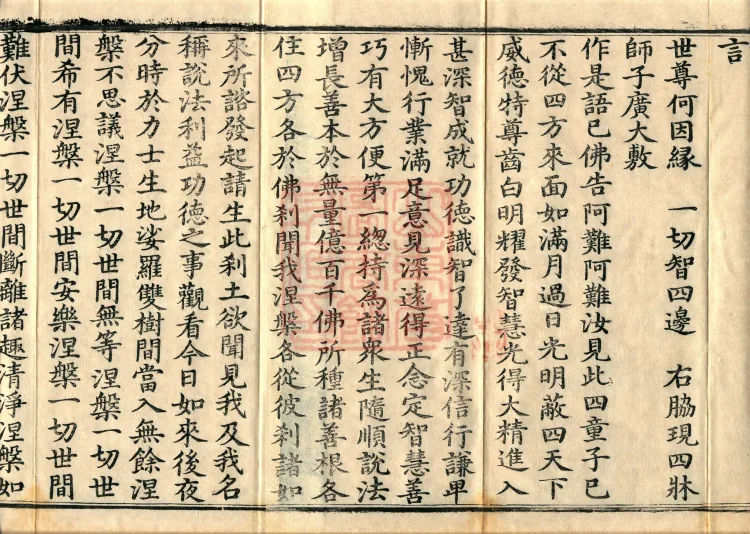 言
世尊何因緣　一切智四邊　右脇現四牀
師子廣大敷
作是語已佛告阿難阿難汝見此四童子已
不從四方來面如滿月過日光明蔽四天下
威德特尊齒白明耀發智慧光得大精進入
甚深智成就功德識智了達有深信行謙卑
慚愧行業滿足意見深遠得正念定智慧善
巧有大方便第一總持為諸衆生隨順說法
增長善本於無量億百千佛所種諸善根各
住四方各於佛刹聞我涅槃各從彼刹諸如
來所諮發起請生此刹土欲聞見我及我名
稱說法利益功德之事觀看今日如來後夜
分時於力士生地娑羅雙樹間當入無餘涅
槃不思議涅槃一切世間無等涅槃一切世
間希有涅槃一切世間安樂涅槃一切世間
難伏涅槃一切世間斷離諸趣清淨涅槃如